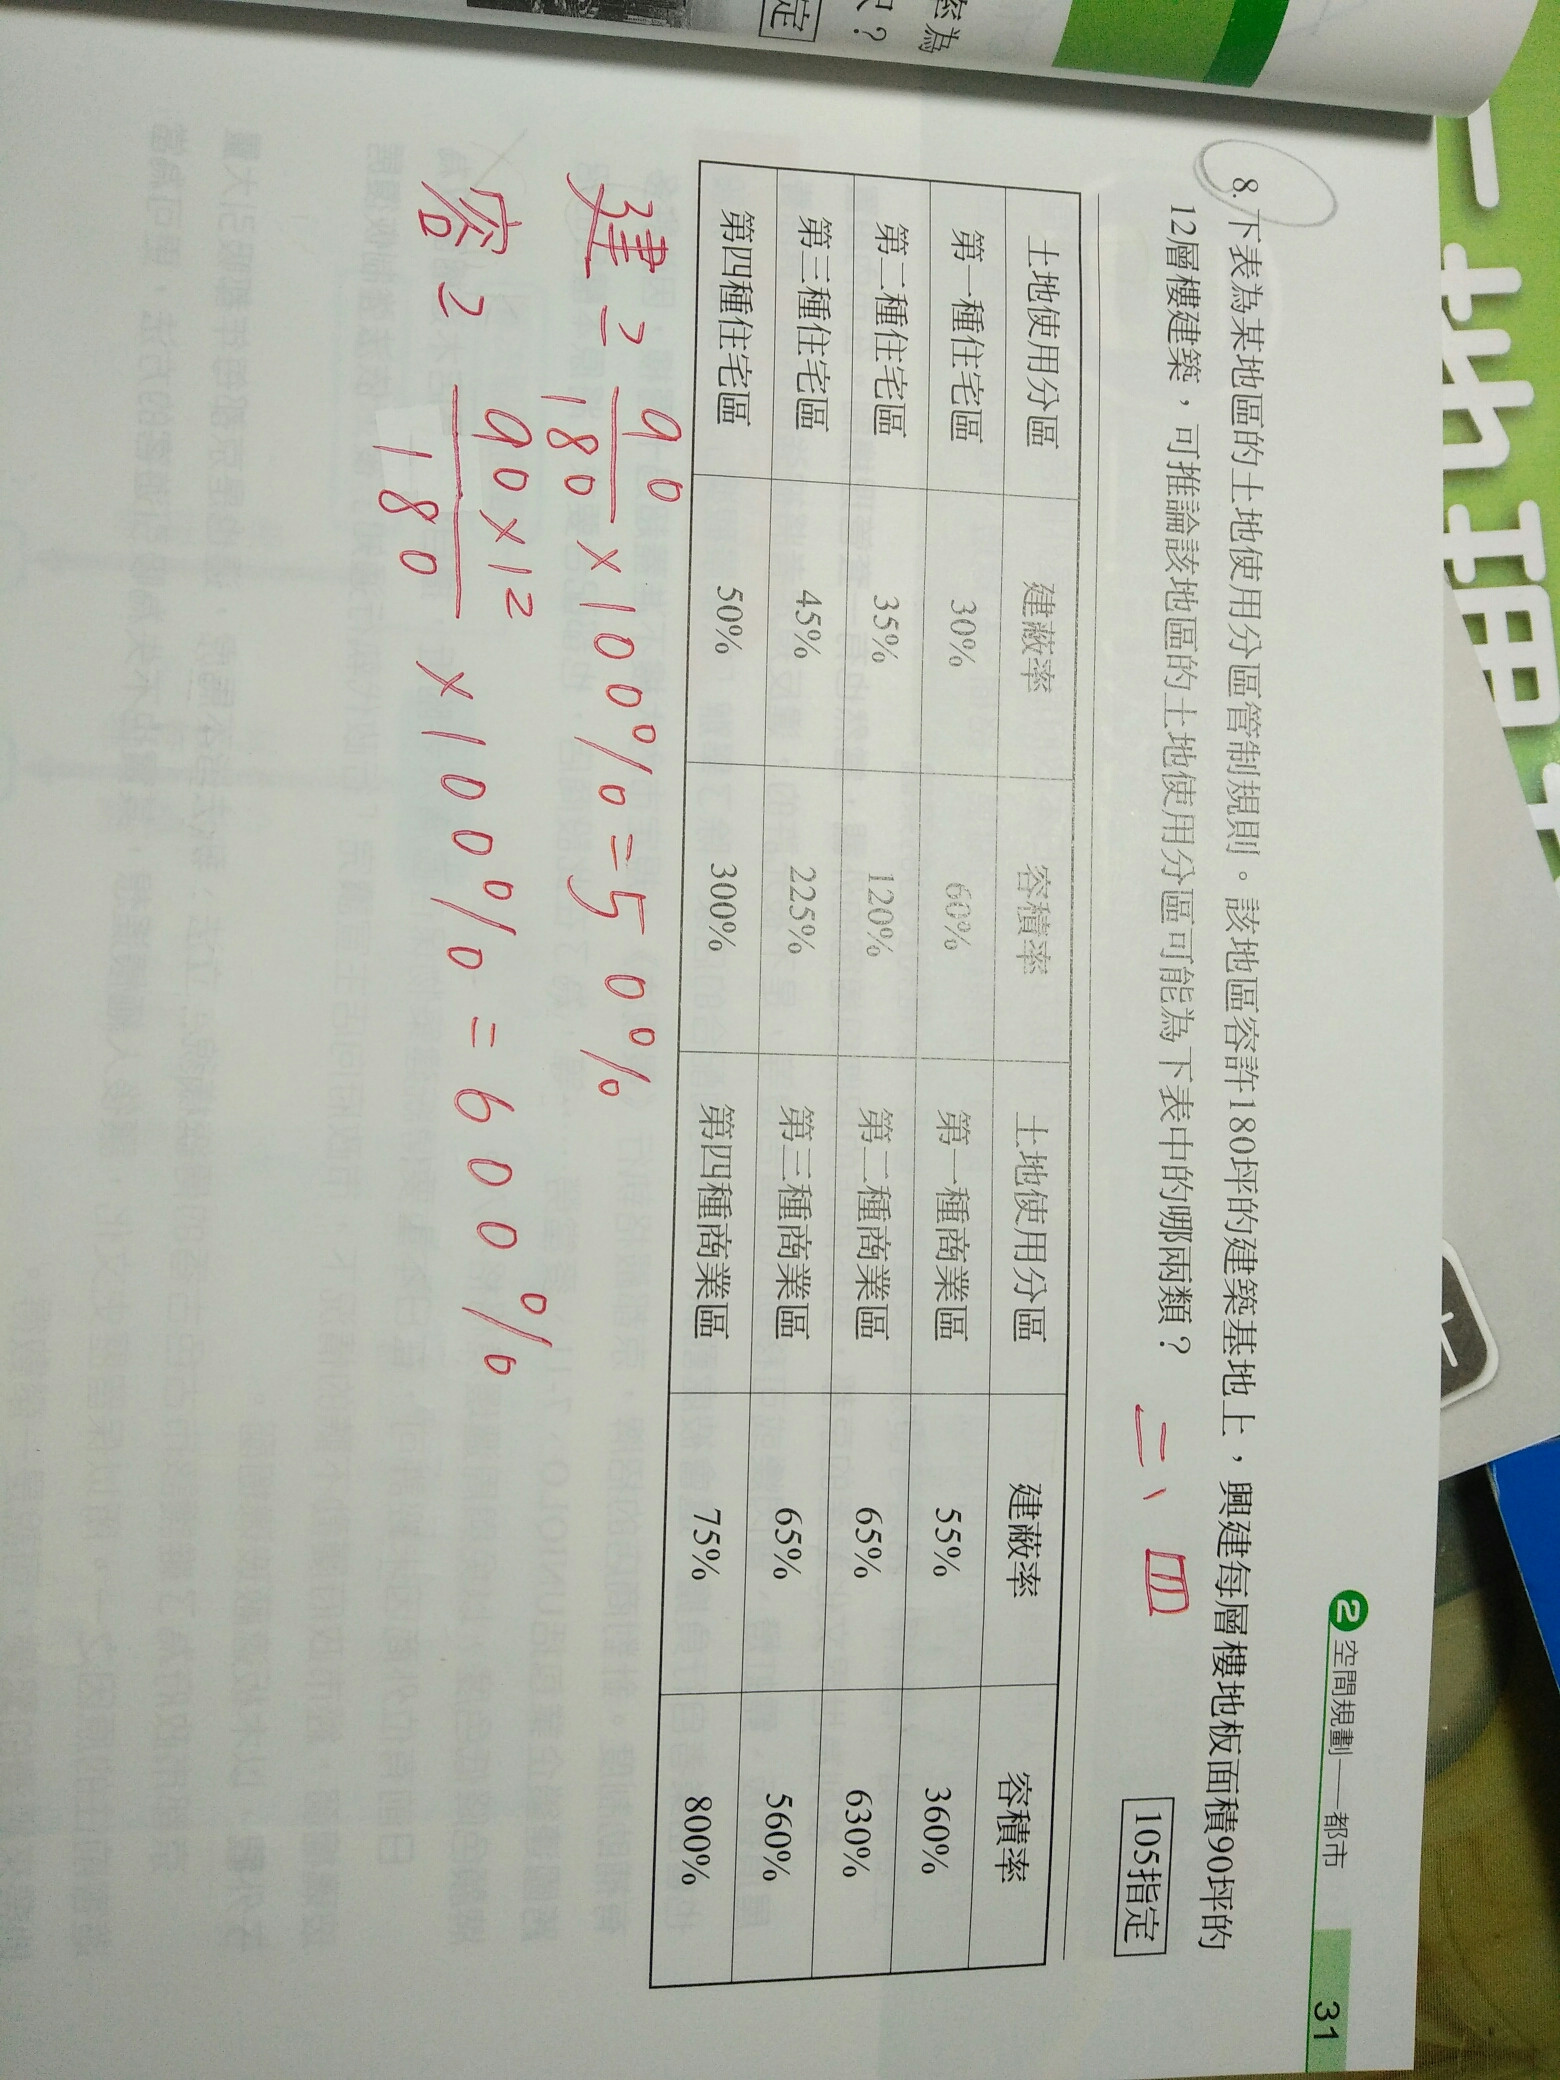 率為
?
定
一
地理
2 空間規劃——都市 31
8. 下表為某地區的土地使用分區管制規則。該地區容許180坪的建築基地上，興建每層樓地板面積90坪的
12層樓建築，可推論該地區的土地使用分區可能為下表中的哪兩類？ 二、四 105指定
土地使用分區 建蔽率 容積率 土地使用分區 建蔽率 容積率
第一種住宅區 30% 60% 第一種商業區 55% 360%
第二種住宅區 35% 120% 第二種商業區 65% 630%
第三種住宅區 45% 225% 第三種商業區 65% 560%
第四種住宅區 50% 300% 第四種商業區 75% 800%
建= 90/180 ×100%=50%
容= 90×12/180 ×100%=600%